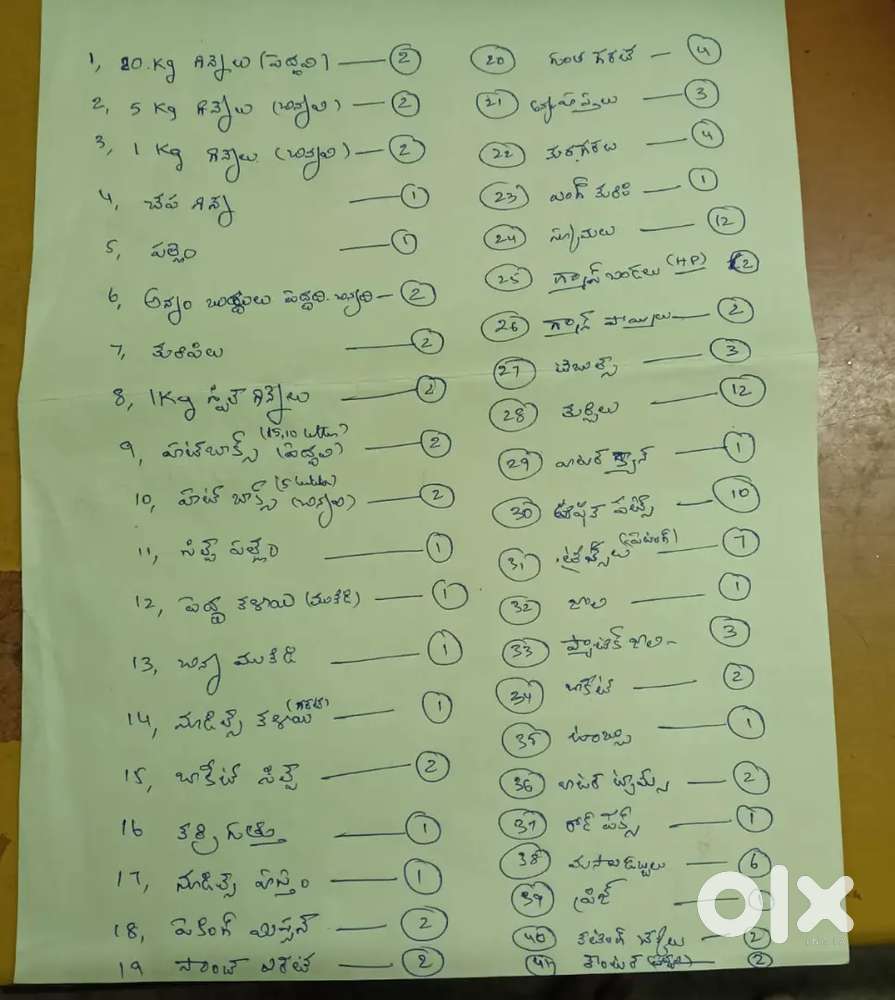 1, 20.Kg గిన్నెలు (పెద్దవి) — 2
2, 5 Kg గిన్నెలు (చిన్నవి) — 2
3, 1 Kg గిన్నెలు (చిన్నవి) — 2
4, చేప గిన్నె — 1
5, పళ్లెం — 1
6, అన్నం బుట్టలు పెద్దది. చిన్నది — 2
7, తురిపిలు — 2
8, 1Kg స్టీల్ గిన్నెలు — 2
9, హాట్‌బాక్స్ (పెద్దవి) — 2
10, హాట్ బాక్స్ (చిన్నవి) — 2
11, సిల్వర్ పళ్లెం — 1
12, పెద్ద కళాయి (ముకిడి) — 1
13, చిన్న ముకిడి — 1
14, నూడిల్స్ కళాయి (గరిట) — 1
15, బాకెట్ సిల్వర్ — 2
16 కర్రి గుత్తు — 1
17, నూడిల్స్ హస్తం — 1
18, పెకింగ్ మిషన్ — 2
19 — 2
20 గుంత గరిట — 4
21 — 3
22 — 4
23 — 1
24 స్పూనులు — 12
25 గ్యాస్ బండలు (HP) 2
26 గ్యాస్ పొయ్యిలు — 2
27 టేబుల్స్ — 3
28 కుర్చీలు — 12
29 వాటర్ క్యాన్ — 1
30 — 10
31 — 7
32 జాలి — 1
33 ప్లాస్టిక్ జాలి — 3
34 బాకెట్ — 2
35 టబ్బు — 1
36 వాటర్ డ్రమ్స్ — 2
37 — 1
38 మసాలడబ్బలు — 6
39 ఫ్రిజ్ —
40 కటింగ్ చెక్కలు — 2
41 కౌంటర్ — 2
olx
INDIA